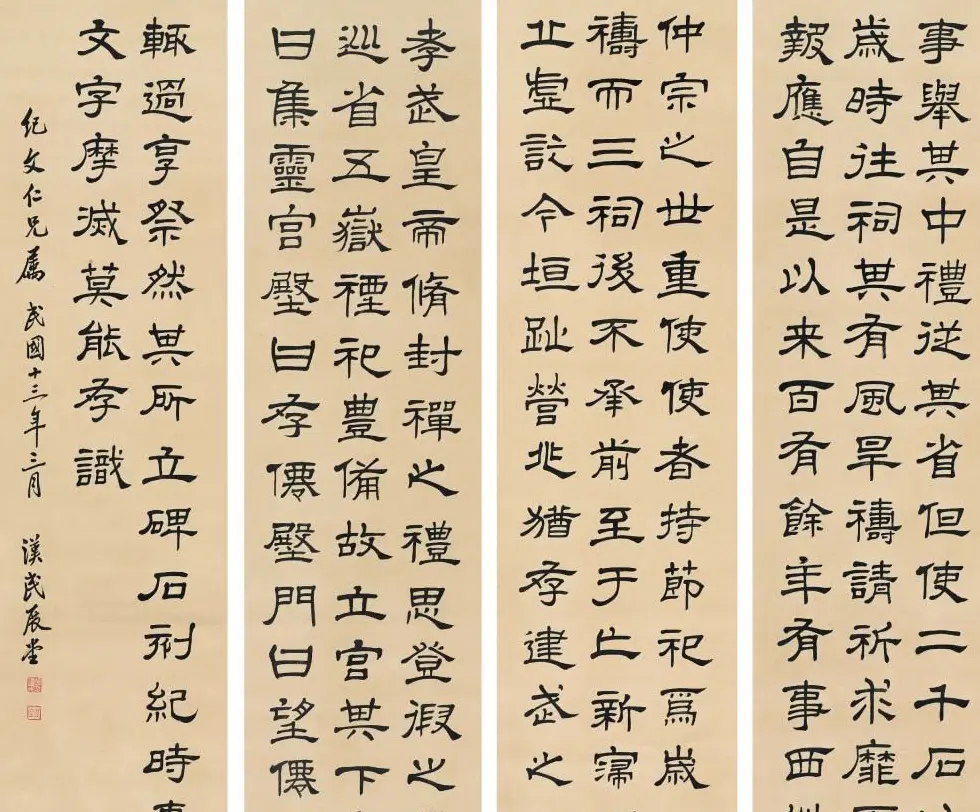 事舉其中禮從其省但使二千石
歲時往祠其有風旱禱請祈求靡
報應自是以来百有餘年有事西
仲宗之世重使使者持節祀焉歲
禱而三祠後不承前至于亡新寖
丘虛訖今垣趾營兆猶存建武之
孝武皇帝脩封禪之禮思登徦之
巡省五嶽禋祀豊備故立宮其下
曰集靈宮壂曰存僊壂門曰望僊
輒過享祭然其所立碑石刻紀時
文字摩滅莫能存識
紀文仁兄屬 民國十三年三月 漢民展堂